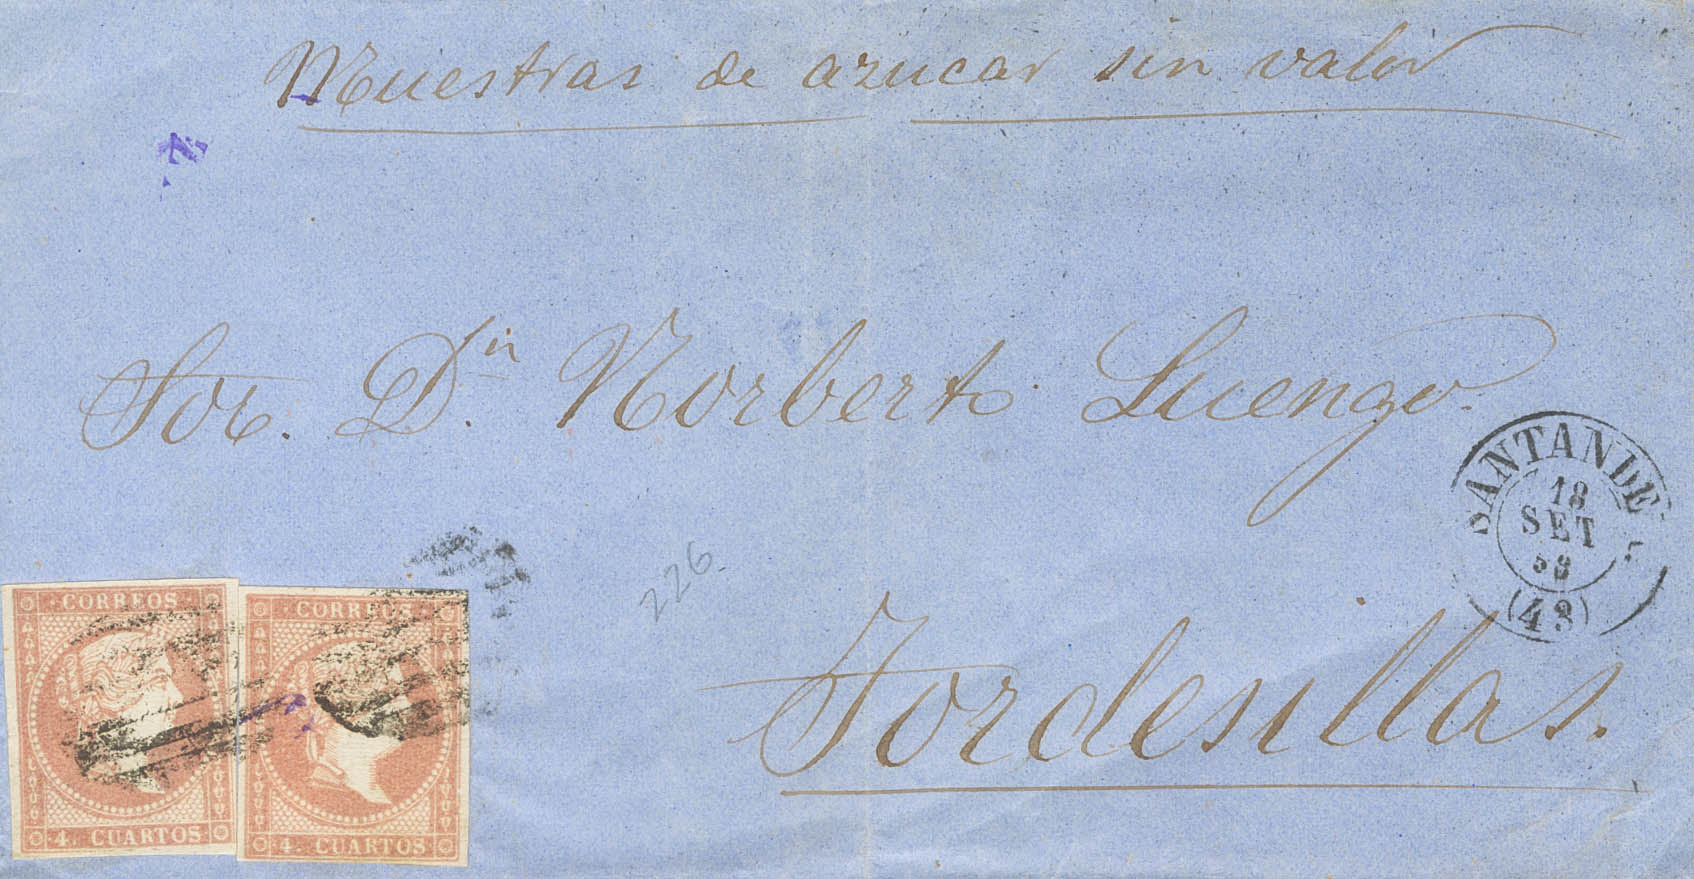 Muestras de azucar sin valor
Sor. Dn Norberto Luengo.
SANTANDE
18
SET
(43)
226
Tordesillas.
CORREOS
4 CUARTOS
CORREOS
4 CUARTOS